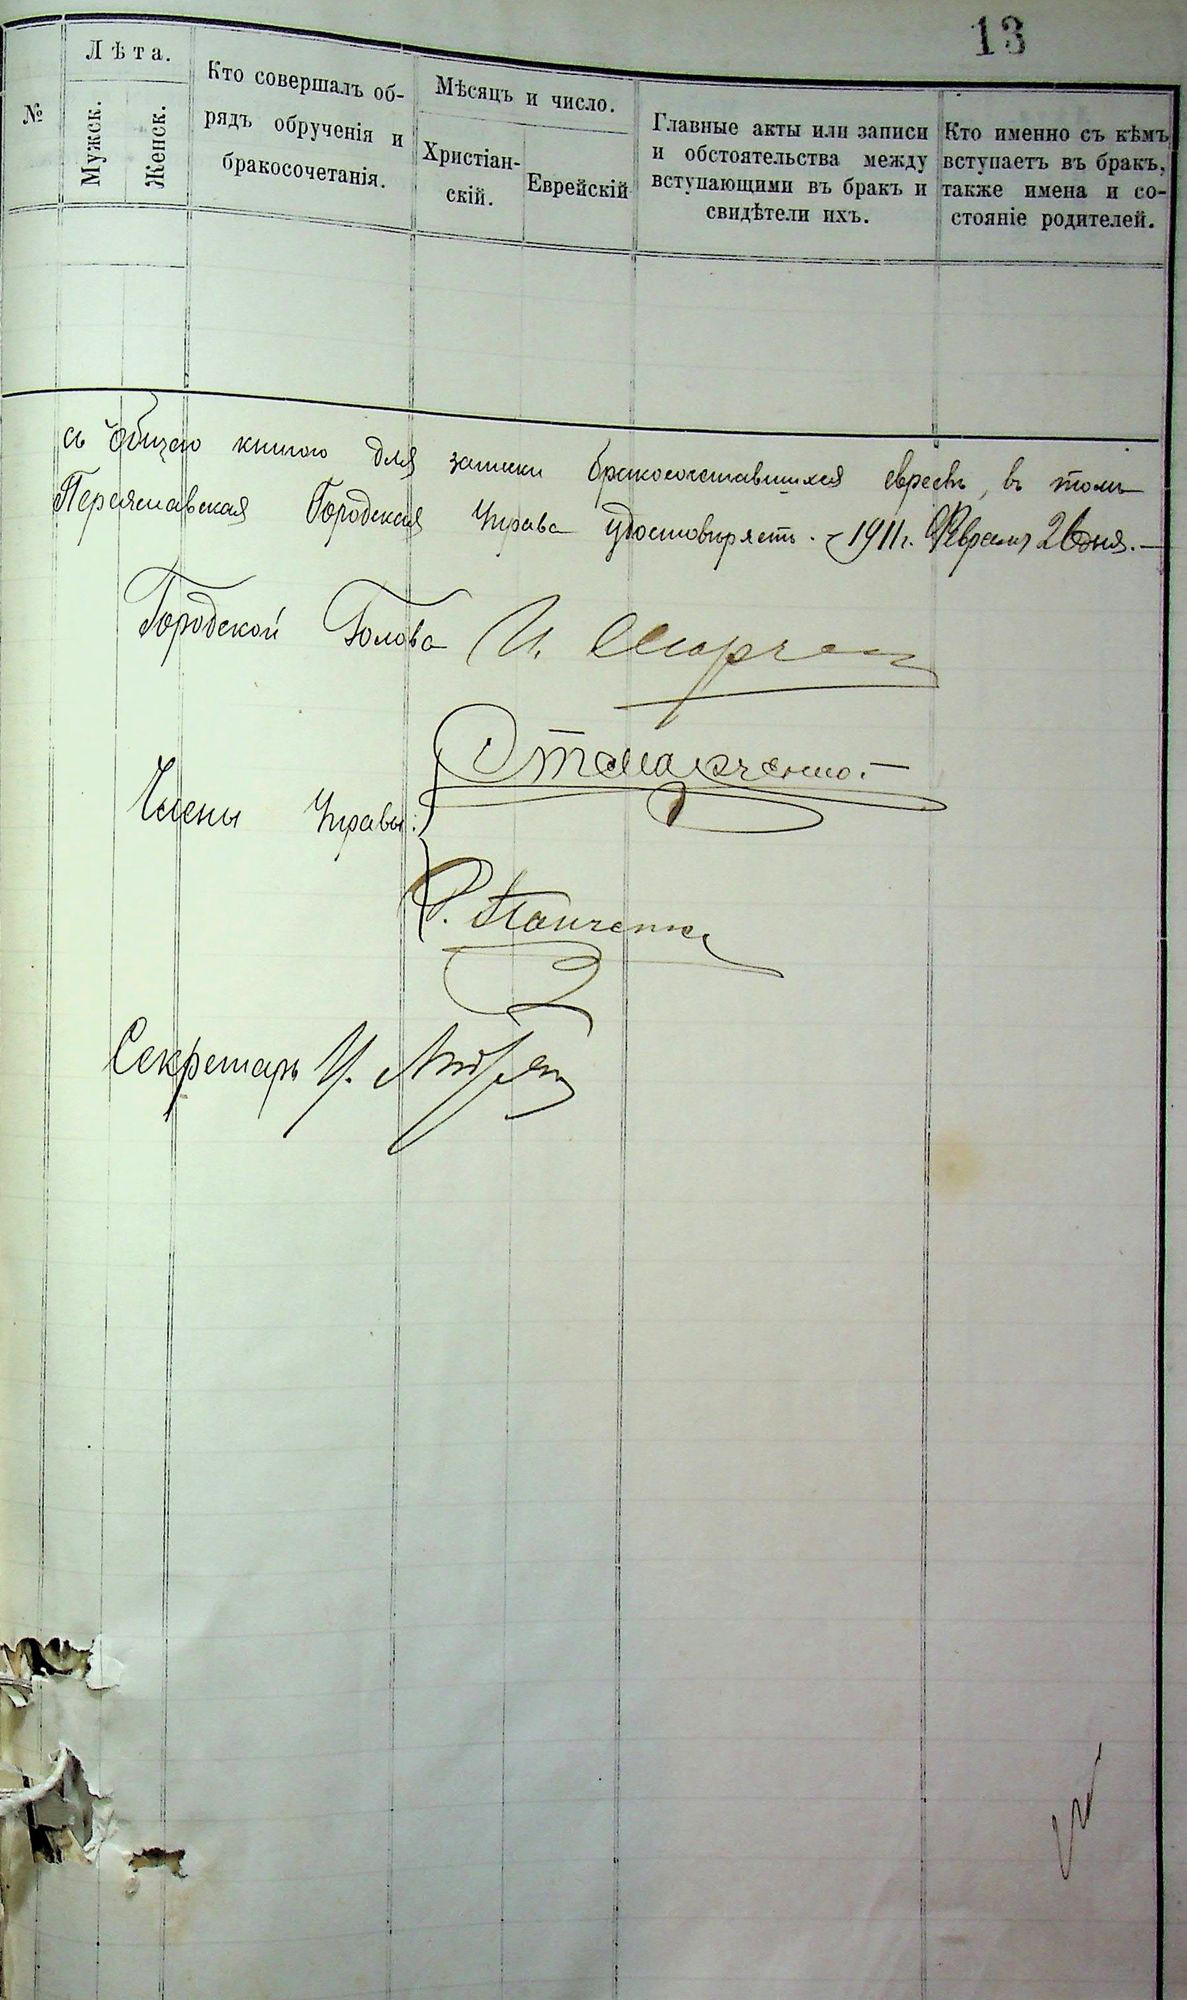 13
№
Лѣта.
Мужск.
Женск.
Кто совершалъ об-
рядъ обрученія и
бракосочетанія.
Мѣсяцъ и число.
Христіан-
скій.
Еврейскій
Главные акты или записи
и обстоятельства между
вступающими въ бракъ и
свидѣтели ихъ.
Кто именно съ кѣмъ
вступаетъ въ бракъ,
также имена и со-
стояніе родителей.
съ общею книгою для записки бракосочетавшихся евреевъ, въ томъ
Переяславская Городская Управа удостовѣряетъ. – 1911 г. Февраля 26 дня. –
Городской Голова И.
Члены Управы:
Панченко
Секретарь